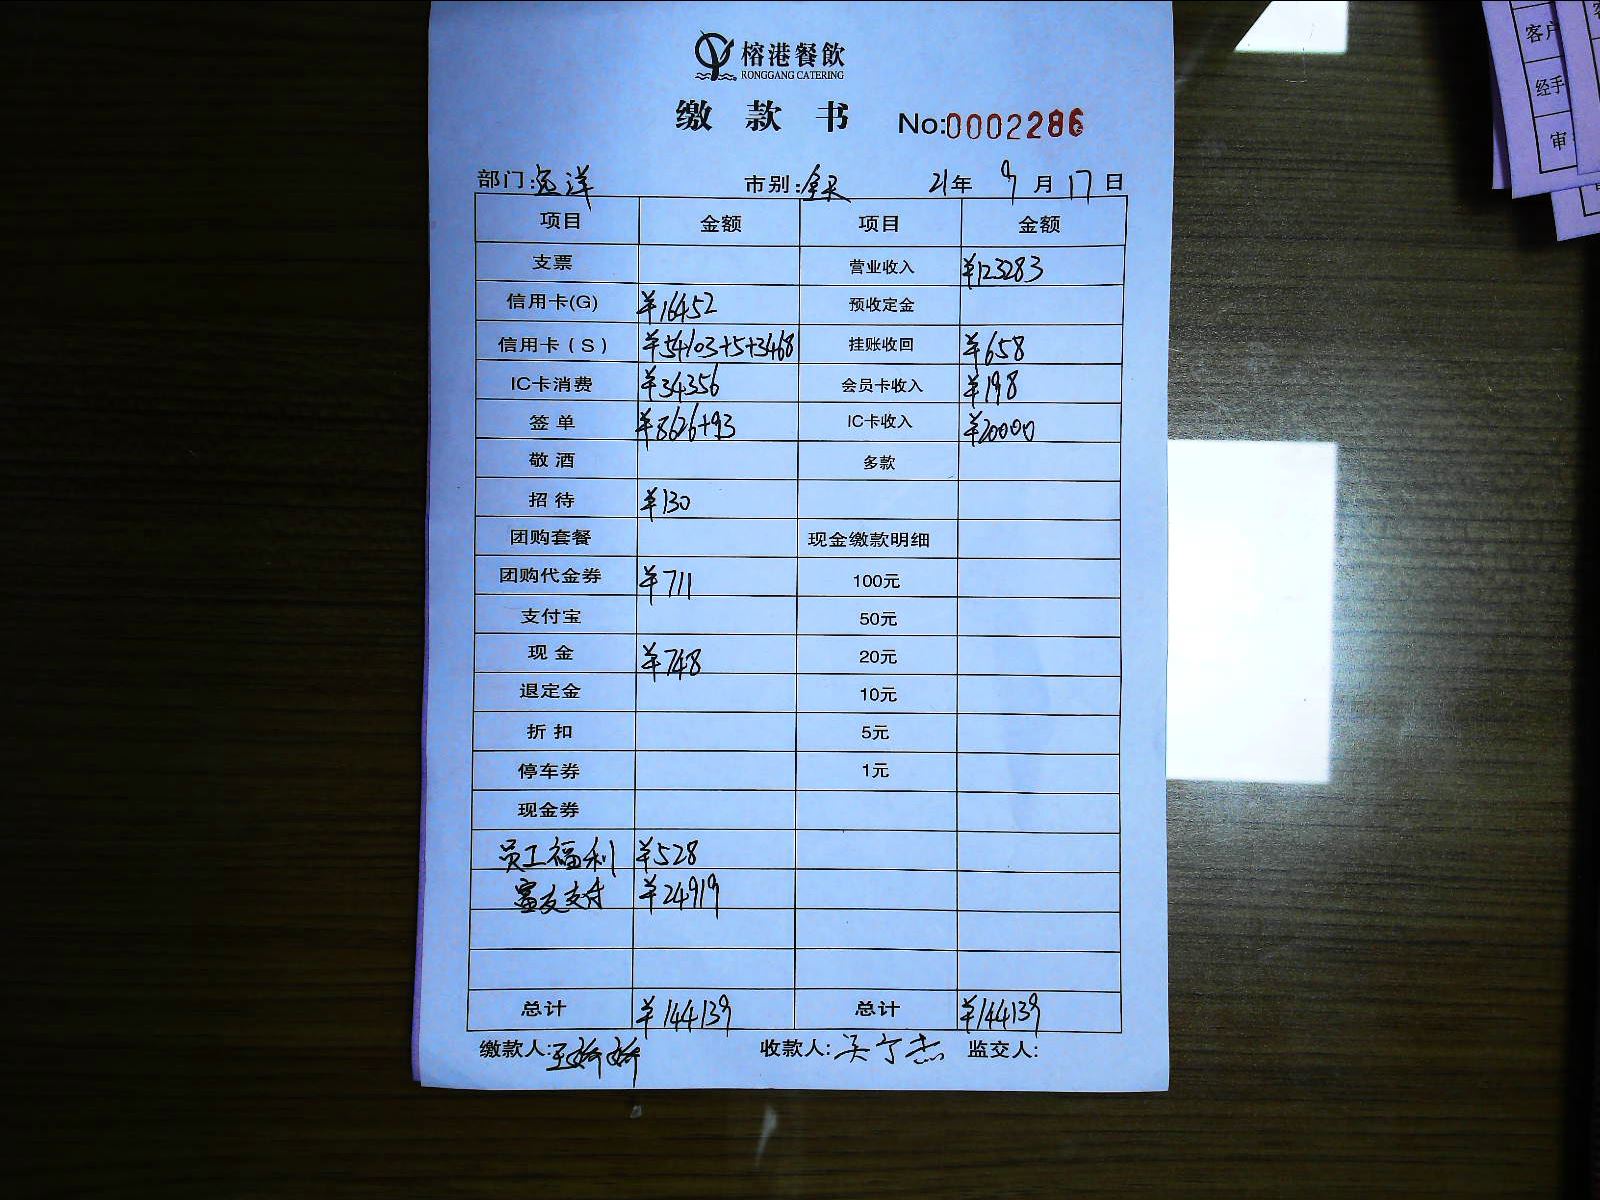 榕港餐飲
RONGGANG CATERING
缴 款 书 No:0002286
部门:远洋 市别:全天 21年 9月 17日
项目 金额 项目 金额
支票 营业收入 ¥123283
信用卡(G) ¥16452 预收定金
信用卡(S) ¥54103+5+3468 挂账收回 ¥658
IC卡消费 ¥34356 会员卡收入 ¥198
签单 ¥8626+93 IC卡收入 ¥20000
敬酒 多款
招待 ¥130
团购套餐 现金缴款明细
团购代金券 ¥711 100元
支付宝 50元
现金 ¥748 20元
退定金 10元
折扣 5元
停车券 1元
现金券
员工福利 ¥528
富友支付 ¥24919
总计 ¥144139 总计 ¥144139
缴款人: 收款人:吴宁杰 监交人:
客户
经手
审